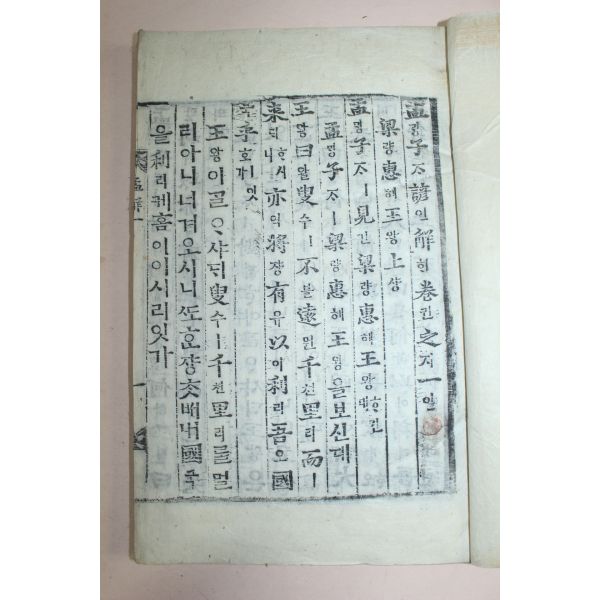 孟ᄆᆡᆼ子ᄌᆞ諺언解ᄒᆡ卷권之지一일
梁량惠혜王왕上샹
孟ᄆᆡᆼ子ᄌᆞㅣ見견梁량惠혜王왕ᄒᆞ신대
孟ᄆᆡᆼ子ᄌᆞㅣ梁량惠혜王왕을보신대
王왕曰왈叟수ㅣ不불遠원千쳔里리而이
來ᄅᆡᄒᆞ시니亦역將쟝有유以이利리吾오國
국乎호잇가
王왕이ᄀᆞᆯᄋᆞ샤ᄃᆡ叟수ㅣ千쳔里리ᄅᆞᆯ멀
리아니너겨오시니ᄯᅩᄒᆞᆫ쟝ᄎᆞᆺᄡᅥ내國국
을利리케홈이이시리잇가